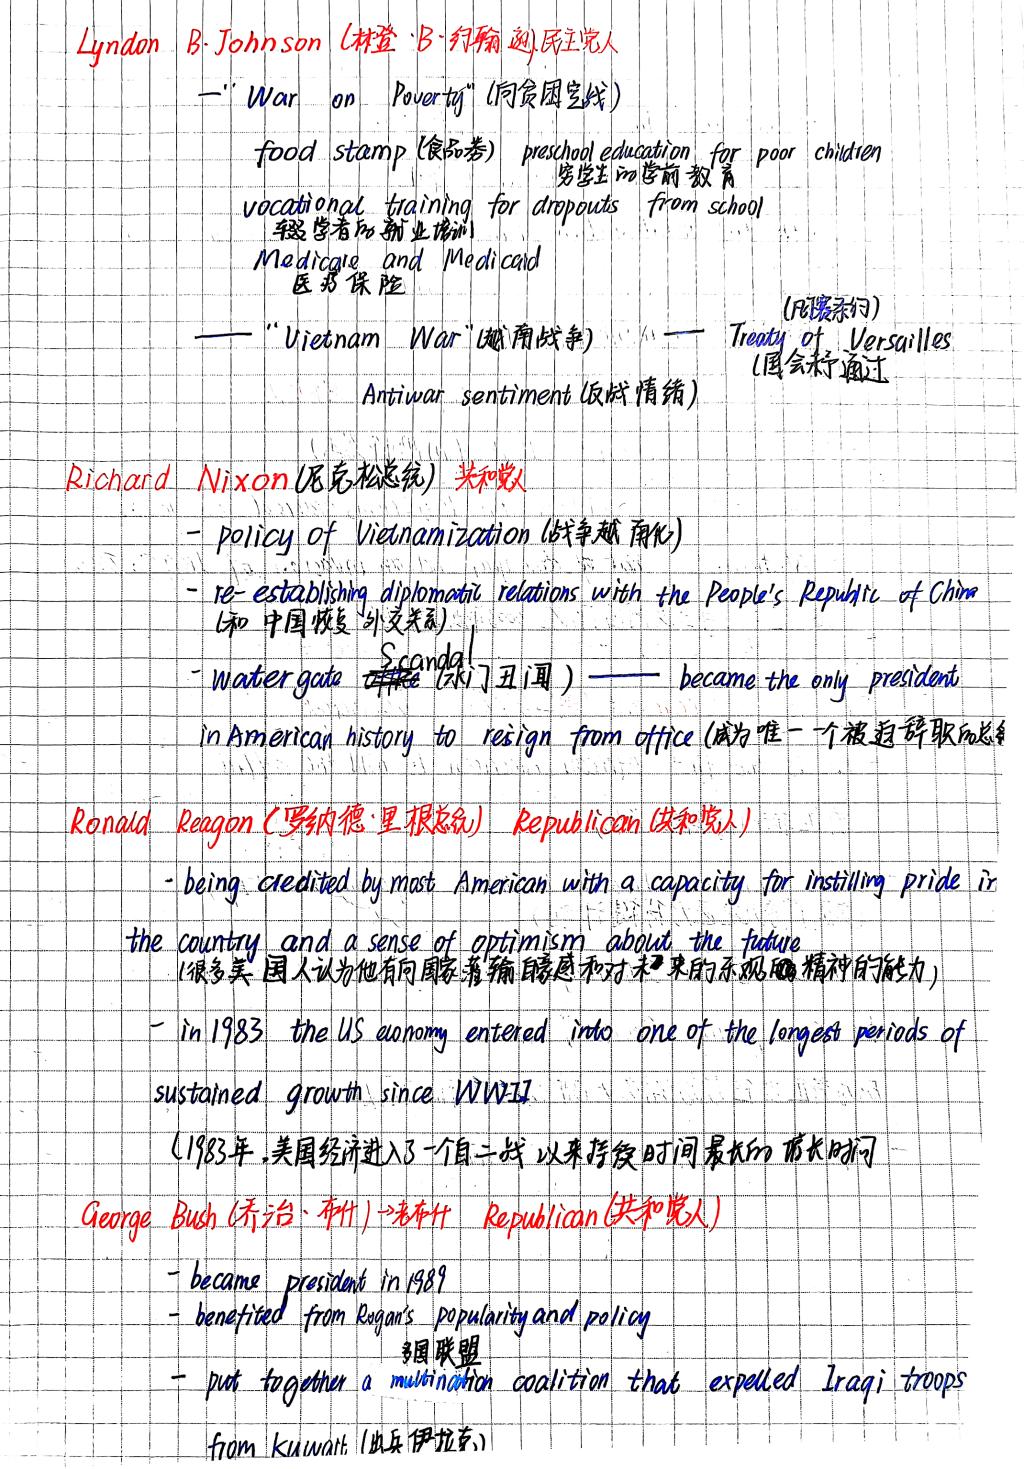 Lyndon B·Johnson (林登·B·约翰逊) 民主党人
—"War on Poverty" (向贫困宣战)
food stamp (食品券) preschool education for poor children
穷学生的学前教育
vocational training for dropouts from school
辍学者的就业培训
Medicare and Medicaid
医疗保险
(凡尔赛条约)
—— "Vietnam War" (越南战争) —— Treaty of Versailles
(国会未予通过
Antiwar sentiment (反战情绪)
Richard Nixon (尼克松总统) 共和党人
- policy of Vietnamization (战争越南化)
- re-establishing diplomatic relations with the People's Republic of China
(和中国恢复外交关系)
Scandal
- watergate (水门丑闻) —— became the only president
in American history to resign from office (成为唯一一个被迫辞职的总统
Ronald Reagon (罗纳德·里根总统) Republican (共和党人)
- being credited by most American with a capacity for instilling pride in
the country and a sense of optimism about the future
(很多美国人认为他有向国家灌输自豪感和对未来的乐观精神的能力)
- in 1983 the US economy entered into one of the longest periods of
sustained growth since WWII
(1983年,美国经济进入了一个自二战以来持续时间最长的增长时间
George Bush (乔治·布什) →老布什 Republican (共和党人)
- became president in 1989
- benefited from Rogan's popularity and policy
多国联盟
- put together a multination coalition that expelled Iraqi troops
from Kuwait. (出兵伊拉克)